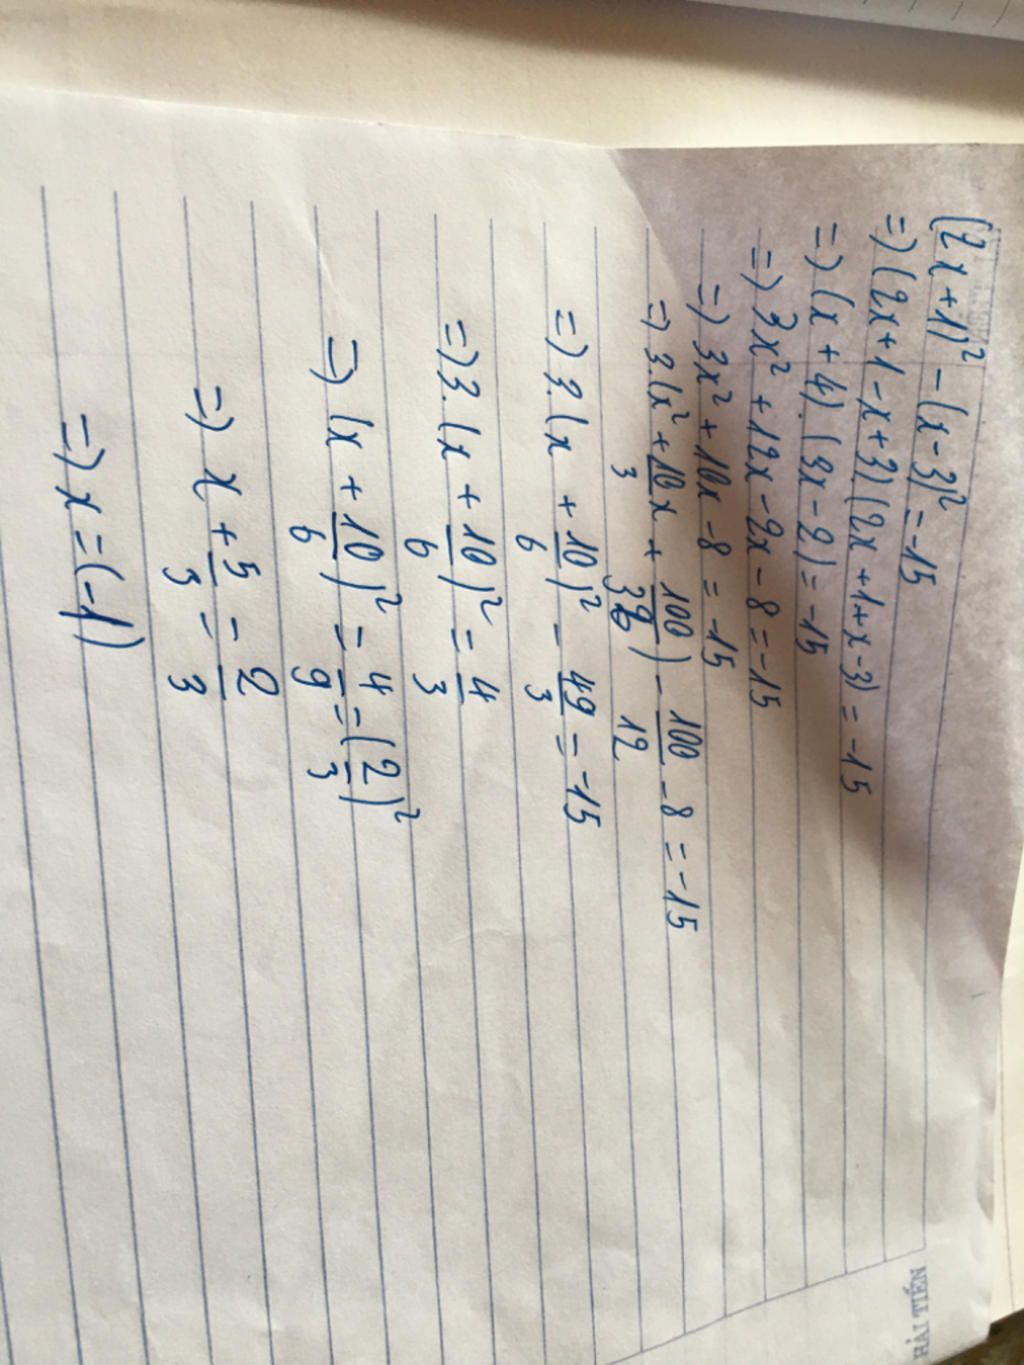 (2x+1)² - (x-3)² = -15
=) (2x+1-x+3)(2x+1+x-3) = -15
=) (x+4).(3x-2) = -15
=) 3x² + 12x - 2x - 8 = -15
=) 3x² + 10x - 8 = -15
=) 3.(x² + 10/3 x + 100/36) - 100/12 - 8 = -15
=) 3.(x + 10/6)² - 49/3 = -15
=) 3.(x + 10/6)² = 4/3
=) (x + 10/6)² = 4/9 = (2/3)²
=) x + 5/3 = 2/3
=) x = (-1)
HẢI TIẾN